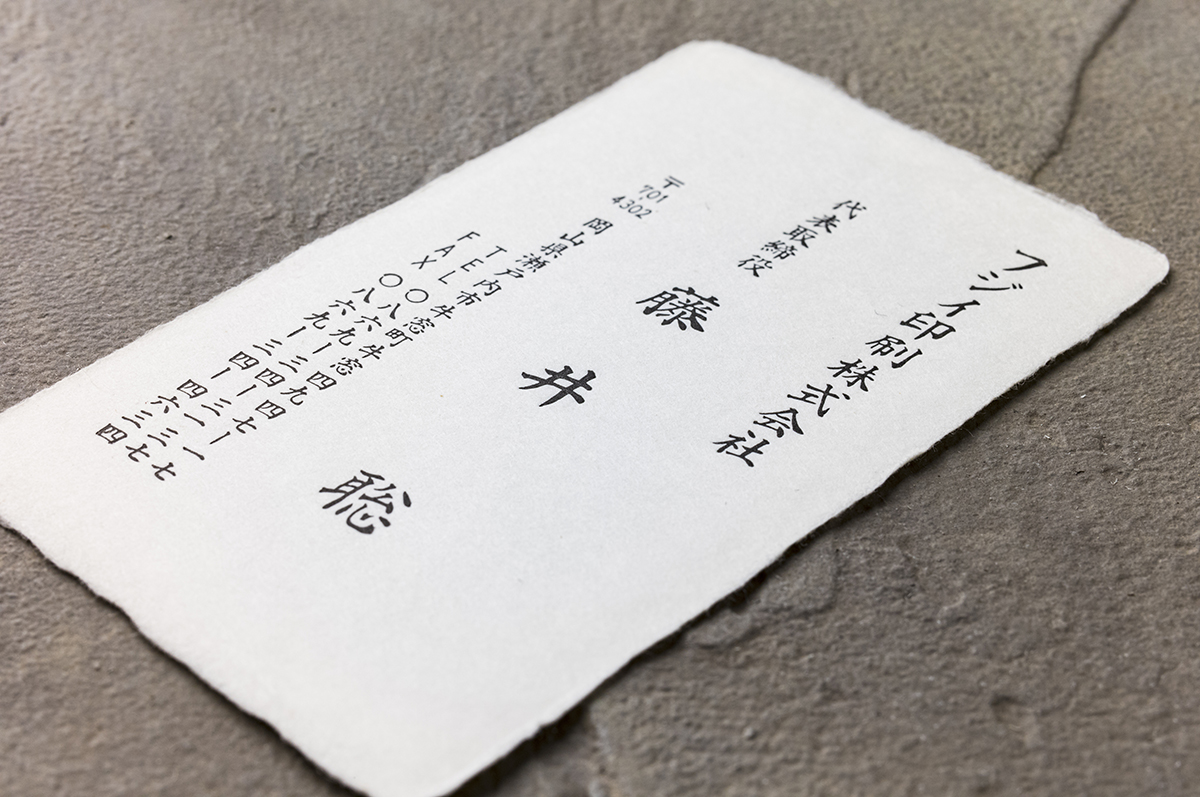 フジイ印刷株式会社
代表取締役
藤井 聡
〒701-4302 岡山県瀬戸内市牛窓町牛窓四九四七ー一七
TEL 〇八六九ー三四ー三一三七
FAX 〇八六九ー三四ー四六三四